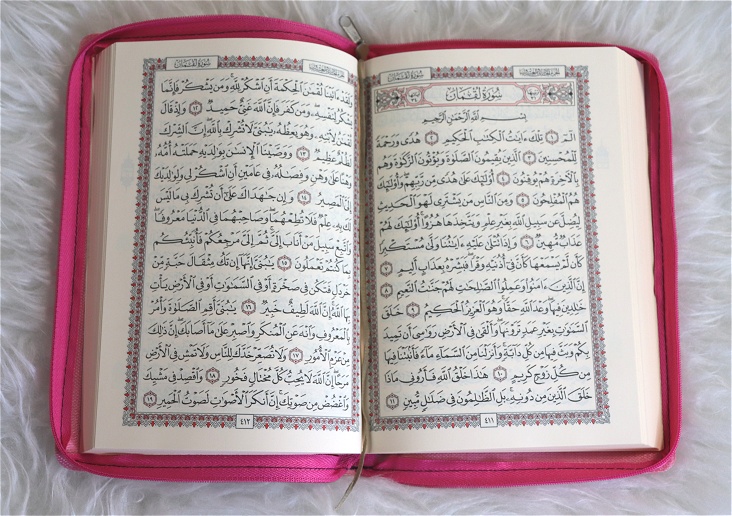 سُورَةُ لُقْمَانَ
سُورَةُ لُقْمَانَ
بِسْمِ ٱللَّهِ ٱلرَّحْمَٰنِ ٱلرَّحِيمِ
الٓمٓ ١ تِلْكَ ءَايَٰتُ ٱلْكِتَٰبِ ٱلْحَكِيمِ ٢ هُدًى وَرَحْمَةً
لِّلْمُحْسِنِينَ ٣ ٱلَّذِينَ يُقِيمُونَ ٱلصَّلَوٰةَ وَيُؤْتُونَ ٱلزَّكَوٰةَ وَهُم
بِٱلْأَخِرَةِ هُمْ يُوقِنُونَ ٤ أُو۟لَٰٓئِكَ عَلَىٰ هُدًى مِّن رَّبِّهِمْ وَأُو۟لَٰٓئِكَ
هُمُ ٱلْمُفْلِحُونَ ٥ وَمِنَ ٱلنَّاسِ مَن يَشْتَرِى لَهْوَ ٱلْحَدِيثِ
لِيُضِلَّ عَن سَبِيلِ ٱللَّهِ بِغَيْرِ عِلْمٍ وَيَتَّخِذَهَا هُزُوًا أُو۟لَٰٓئِكَ لَهُمْ
عَذَابٌ مُّهِينٌ ٦ وَإِذَا تُتْلَىٰ عَلَيْهِ ءَايَٰتُنَا وَلَّىٰ مُسْتَكْبِرًا
كَأَن لَّمْ يَسْمَعْهَا كَأَنَّ فِىٓ أُذُنَيْهِ وَقْرًا فَبَشِّرْهُ بِعَذَابٍ أَلِيمٍ ٧
إِنَّ ٱلَّذِينَ ءَامَنُوا۟ وَعَمِلُوا۟ ٱلصَّٰلِحَٰتِ لَهُمْ جَنَّٰتُ ٱلنَّعِيمِ ٨
خَٰلِدِينَ فِيهَا وَعْدَ ٱللَّهِ حَقًّا وَهُوَ ٱلْعَزِيزُ ٱلْحَكِيمُ ٩ خَلَقَ
ٱلسَّمَٰوَٰتِ بِغَيْرِ عَمَدٍ تَرَوْنَهَا وَأَلْقَىٰ فِى ٱلْأَرْضِ رَوَٰسِىَ أَن تَمِيدَ
بِكُمْ وَبَثَّ فِيهَا مِن كُلِّ دَآبَّةٍ وَأَنزَلْنَا مِنَ ٱلسَّمَآءِ مَآءً فَأَنۢبَتْنَا فِيهَا
مِن كُلِّ زَوْجٍ كَرِيمٍ ١٠ هَٰذَا خَلْقُ ٱللَّهِ فَأَرُونِى مَاذَا
خَلَقَ ٱلَّذِينَ مِن دُونِهِۦ بَلِ ٱلظَّٰلِمُونَ فِى ضَلَٰلٍ مُّبِينٍ ١١
٤١١
سُورَةُ لُقْمَانَ
وَلَقَدْ ءَاتَيْنَا لُقْمَٰنَ ٱلْحِكْمَةَ أَنِ ٱشْكُرْ لِلَّهِ وَمَن يَشْكُرْ فَإِنَّمَا
يَشْكُرُ لِنَفْسِهِۦ وَمَن كَفَرَ فَإِنَّ ٱللَّهَ غَنِىٌّ حَمِيدٌ ١٢ وَإِذْ قَالَ
لُقْمَٰنُ لِٱبْنِهِۦ وَهُوَ يَعِظُهُۥ يَٰبُنَىَّ لَا تُشْرِكْ بِٱللَّهِ إِنَّ ٱلشِّرْكَ
لَظُلْمٌ عَظِيمٌ ١٣ وَوَصَّيْنَا ٱلْإِنسَٰنَ بِوَٰلِدَيْهِ حَمَلَتْهُ أُمُّهُۥ
وَهْنًا عَلَىٰ وَهْنٍ وَفِصَٰلُهُۥ فِى عَامَيْنِ أَنِ ٱشْكُرْ لِى وَلِوَٰلِدَيْكَ
إِلَىَّ ٱلْمَصِيرُ ١٤ وَإِن جَٰهَدَاكَ عَلَىٰٓ أَن تُشْرِكَ بِى مَا لَيْسَ
لَكَ بِهِۦ عِلْمٌ فَلَا تُطِعْهُمَا وَصَاحِبْهُمَا فِى ٱلدُّنْيَا مَعْرُوفًا
وَٱتَّبِعْ سَبِيلَ مَنْ أَنَابَ إِلَىَّ ثُمَّ إِلَىَّ مَرْجِعُكُمْ فَأُنَبِّئُكُم
بِمَا كُنتُمْ تَعْمَلُونَ ١٥ يَٰبُنَىَّ إِنَّهَآ إِن تَكُ مِثْقَالَ حَبَّةٍ مِّنْ
خَرْدَلٍ فَتَكُن فِى صَخْرَةٍ أَوْ فِى ٱلسَّمَٰوَٰتِ أَوْ فِى ٱلْأَرْضِ يَأْتِ
بِهَا ٱللَّهُ إِنَّ ٱللَّهَ لَطِيفٌ خَبِيرٌ ١٦ يَٰبُنَىَّ أَقِمِ ٱلصَّلَوٰةَ وَأْمُرْ
بِٱلْمَعْرُوفِ وَٱنْهَ عَنِ ٱلْمُنكَرِ وَٱصْبِرْ عَلَىٰ مَآ أَصَابَكَ إِنَّ ذَٰلِكَ
مِنْ عَزْمِ ٱلْأُمُورِ ١٧ وَلَا تُصَعِّرْ خَدَّكَ لِلنَّاسِ وَلَا تَمْشِ فِى ٱلْأَرْضِ
مَرَحًا إِنَّ ٱللَّهَ لَا يُحِبُّ كُلَّ مُخْتَالٍ فَخُورٍ ١٨ وَٱقْصِدْ فِى مَشْيِكَ
وَٱغْضُضْ مِن صَوْتِكَ إِنَّ أَنكَرَ ٱلْأَصْوَٰتِ لَصَوْتُ ٱلْحَمِيرِ ١٩
٤١٢